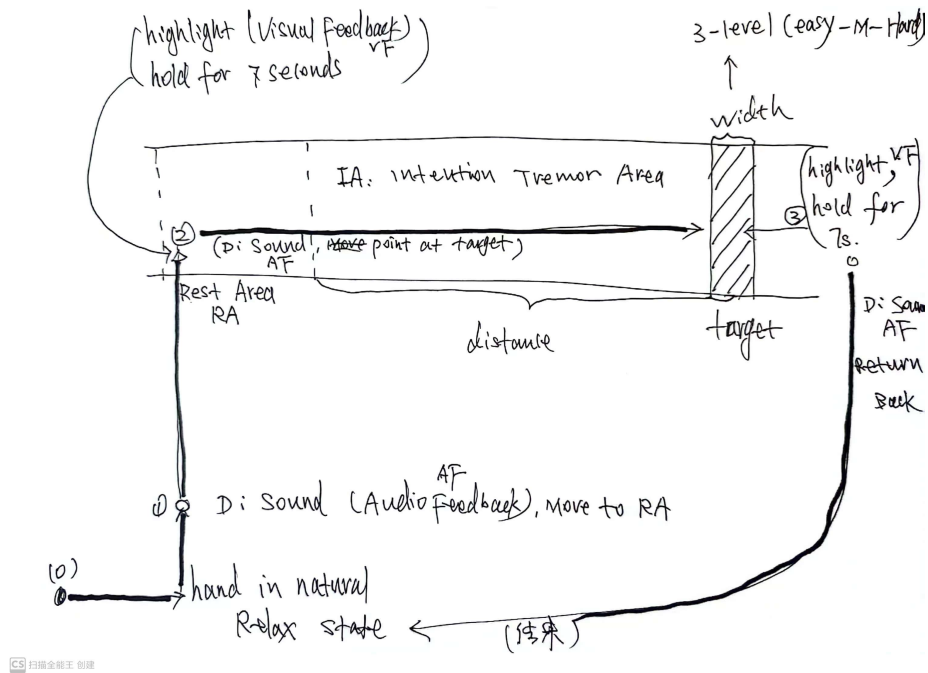 highlight (Visual Feedback)
VF
hold for 7 seconds
3-level (easy-M-Hard)
width
IA: Intention Tremor Area
highlight, VF
hold for
7s.
③
(2)
(Di Sound, Move point at target)
AF
Rest Area
RA
distance
target
Di Sound
AF
Return
Back
AF
① Di Sound (Audio Feedback), Move to RA
(0)
hand in natural
Relax state
(结束)
CS 扫描全能王 创建